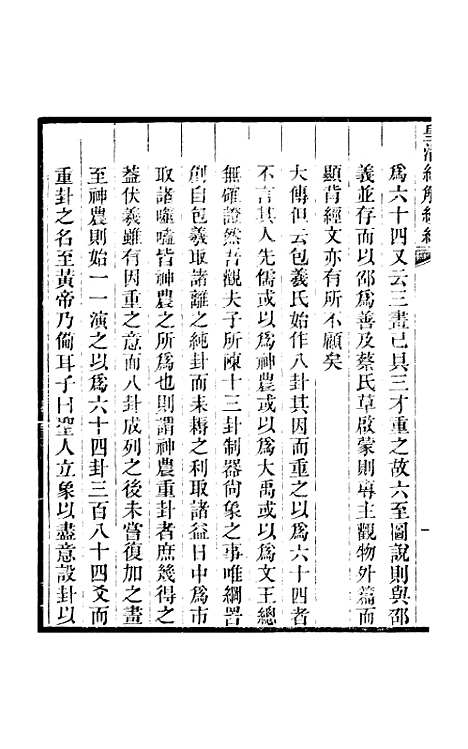 皇清經解續編
為六十四又云三畫已具三才重之故六至圖說則與邵
義並存而以邵為善及蔡氏草啟蒙則專主觀物外篇而
顯背經文亦有所不顧矣
大傳但云包羲氏始作八卦其因而重之以為六十四者
不言其人先儒或以為神農或以為大禹或以為文王總
無確證然吾觀夫子所陳十三卦制器尚象之事唯網罟
創自包羲取諸離之純卦而耒耨之利取諸益日中為市
取諸噬嗑皆神農之所為也則謂神農重卦者庶幾得之
蓋伏羲雖有因重之意而八卦成列之後未嘗復加之畫
至神農則始一一演之以為六十四卦三百八十四爻而
重卦之名至黃帝乃備耳子曰聖人立象以盡意設卦以